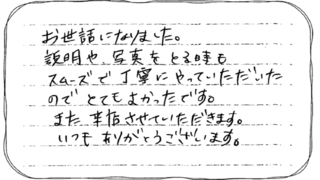 お世話になりました。
説明や、写真をとる時も
スムーズで丁寧にやっていただいた
のでとてもよかったです。
また、来店させていただきます。
いつもありがとうございます。